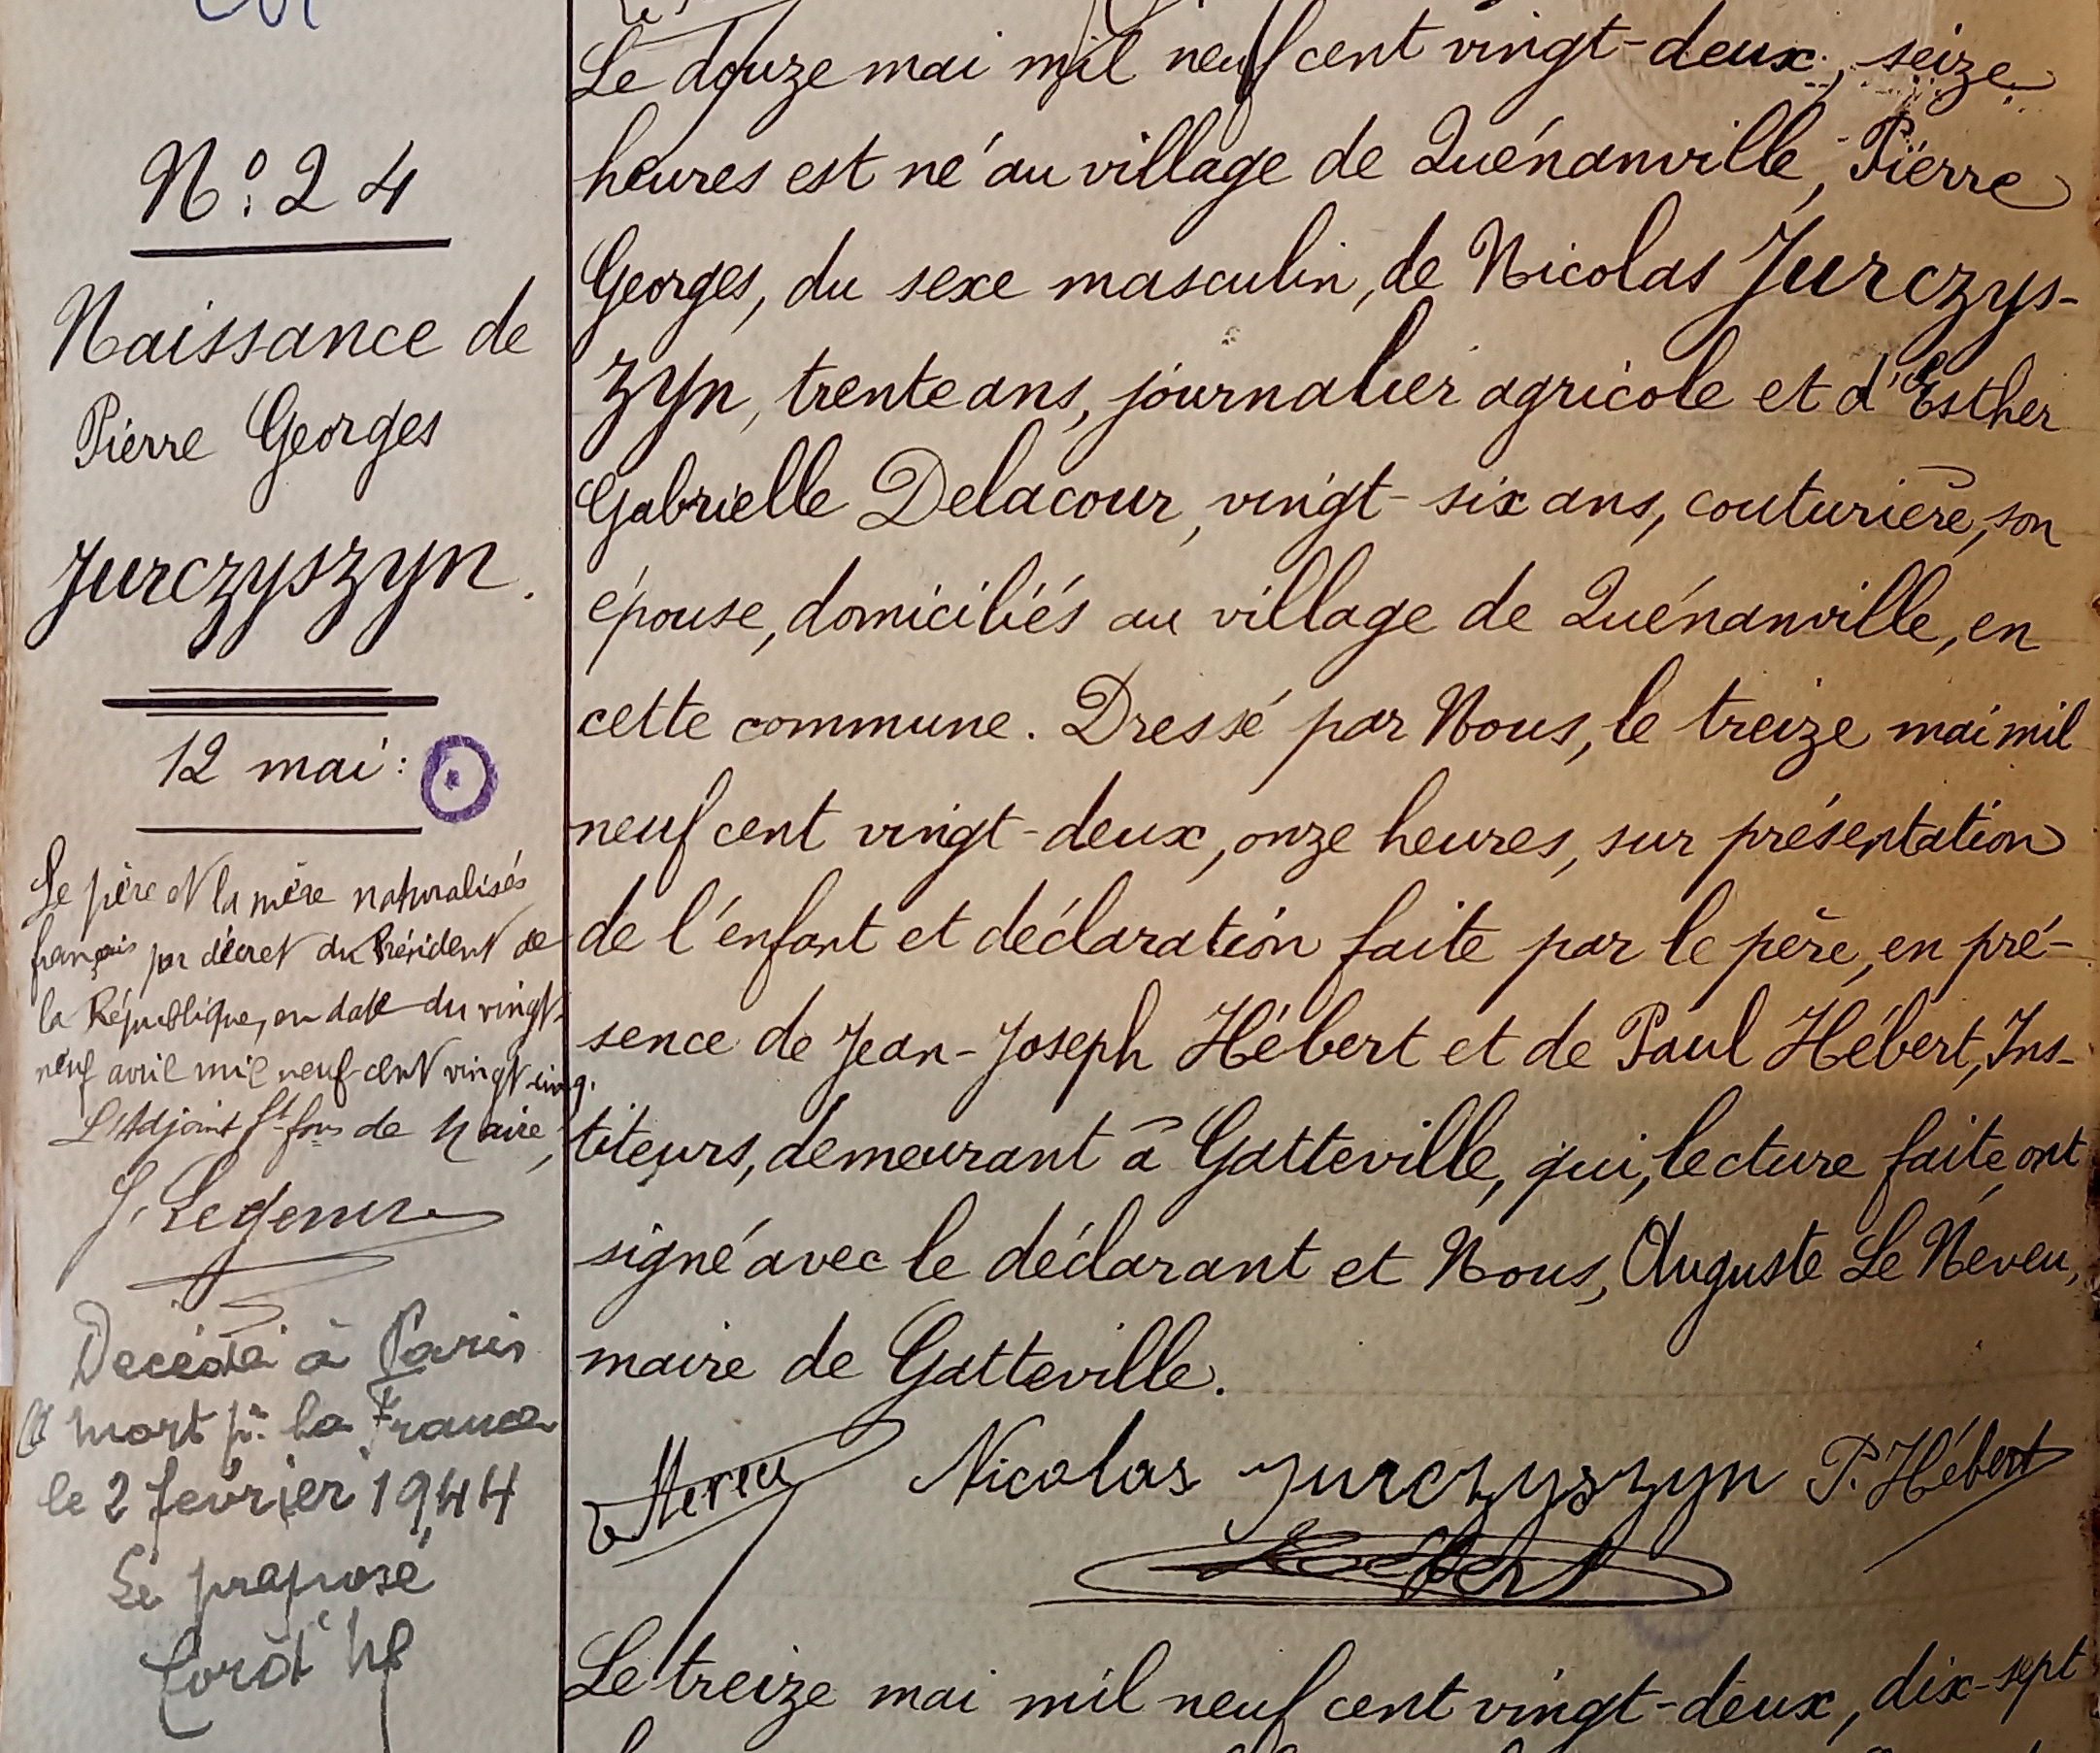 N° 24
Naissance de
Pierre Georges
Jurczyszyn.
12 mai :
Le père et la mère naturalisés
français par décret du Président de
la République, en date du vingt-
neuf avril mil neuf cent vingt-cinq.
L'Adjoint ft fons de Maire,
Décédé à Paris
mort pr la France
le 2 février 1944
Le préposé
Le douze mai mil neuf cent vingt-deux, seize
heures est né au village de Quénanville, Pierre
Georges, du sexe masculin, de Nicolas Jurczys-
zyn, trente ans, journalier agricole et d'Esther
Gabrielle Delacour, vingt-six ans, couturière, son
épouse, domiciliés au village de Quénanville, en
cette commune. Dressé par Nous, le treize mai mil
neuf cent vingt-deux, onze heures, sur présentation
de l'enfant et déclaration faite par le père, en pré-
sence de Jean-Joseph Hébert et de Paul Hébert, Ins-
tituteurs, demeurant à Gatteville, qui, lecture faite, ont
signé avec le déclarant et Nous, Auguste Le Neveu,
maire de Gatteville.
Nicolas Jurczyszyn P. Hébert
Le treize mai mil neuf cent vingt-deux, dix-sept